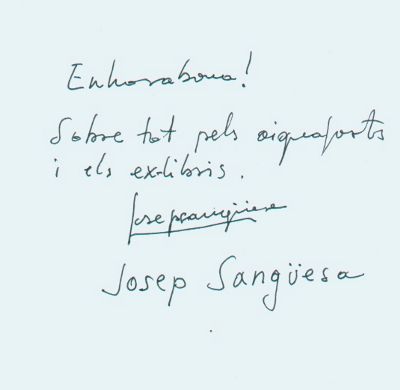 Enhorabona!
Sobre tot pels aiguaforts
i els ex-libris.
Josep Sangüesa
Josep Sangüesa